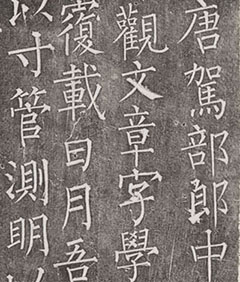 唐駕部郎中
觀文章字學
覆載日月吾
以寸管測明